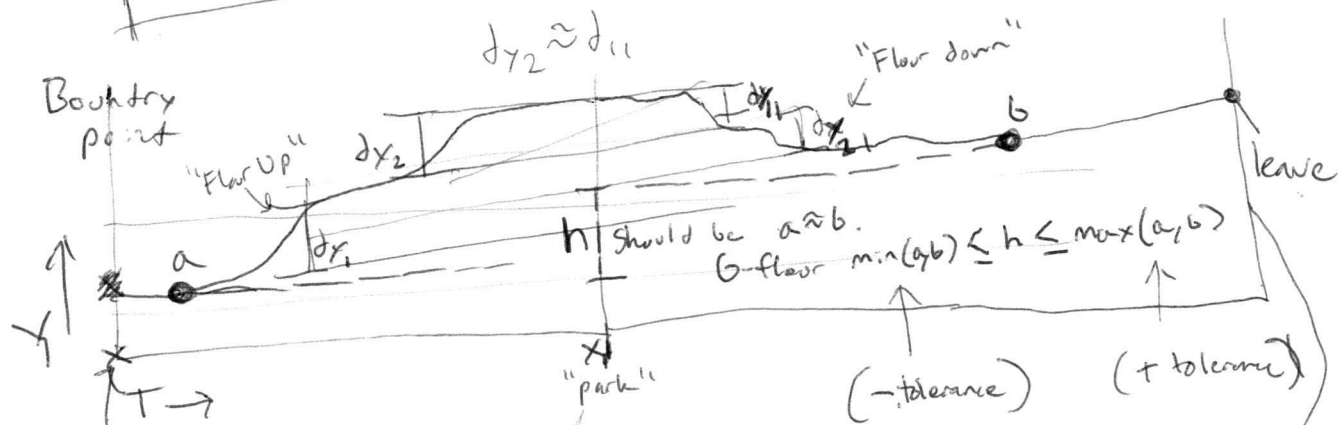 dy2 ≈ d11
"Floor down"
Boundry
point
"Floor Up"
dy2
dy11
dy21
b
leave
a
dy1
h
Should be a ≈ b.
G-floor min(a,b) ≤ h ≤ max(a,b)
Y
X
X
T →
"park"
(- tolerance)
(+ tolerance)